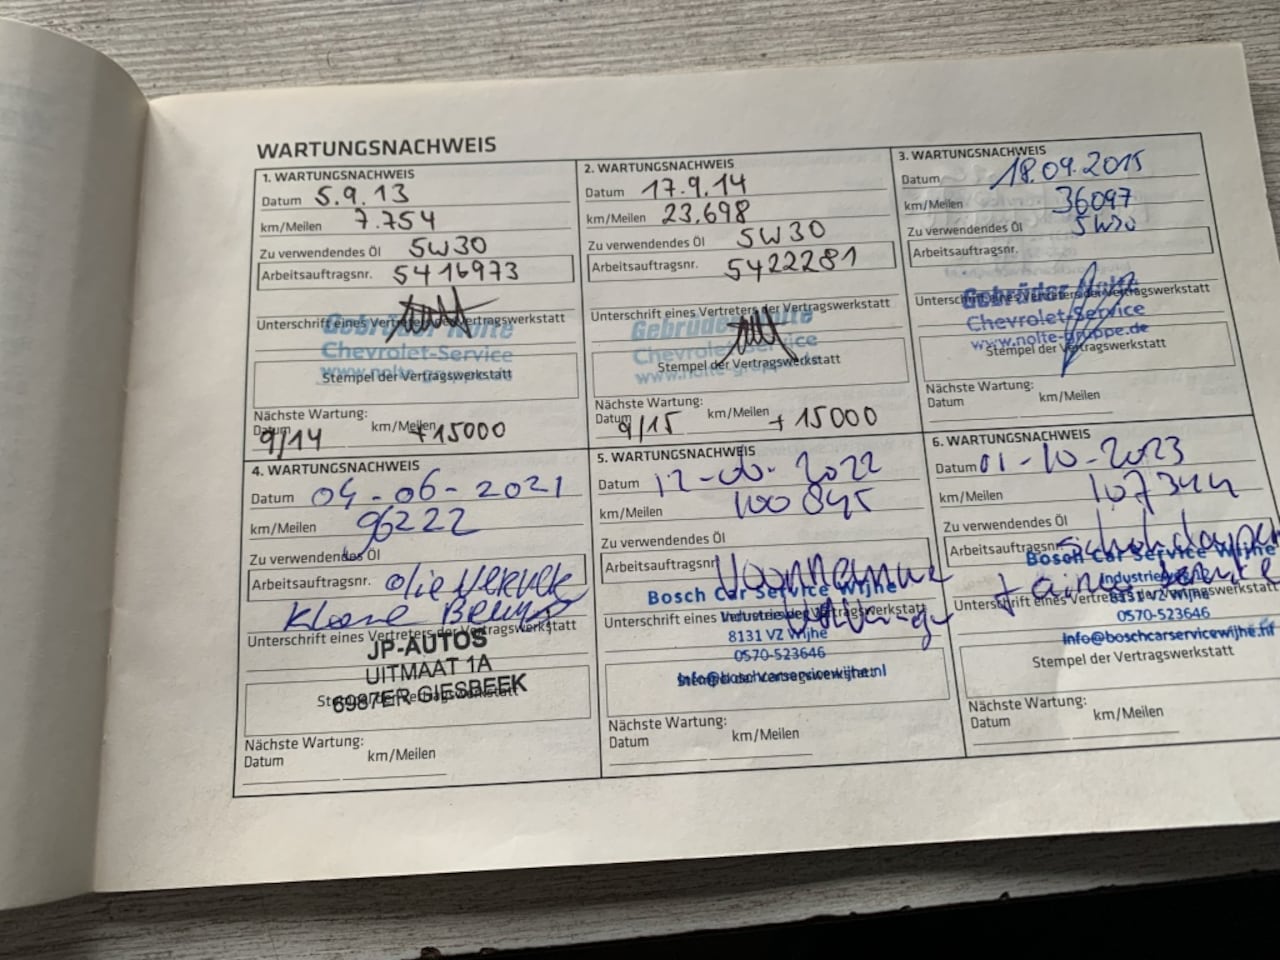 WARTUNGSNACHWEIS
1. WARTUNGSNACHWEIS
Datum 5.9.13
km/Meilen 7.754
Zu verwendendes Öl 5W30
Arbeitsauftragsnr. 5416973
Unterschrift eines Vertreters der Vertragswerkstatt
Gebrüder Nolte
Chevrolet-Service
www.nolte-gruppe.de
Stempel der Vertragswerkstatt
Nächste Wartung:
Datum 9/14 km/Meilen +15000
2. WARTUNGSNACHWEIS
Datum 17.9.14
km/Meilen 23.698
Zu verwendendes Öl 5W30
Arbeitsauftragsnr. 5422281
Unterschrift eines Vertreters der Vertragswerkstatt
Gebrüder Nolte
Chevrolet-Service
www.nolte-gruppe.de
Stempel der Vertragswerkstatt
Nächste Wartung:
Datum 9/15 km/Meilen +15000
3. WARTUNGSNACHWEIS
Datum 18.09.2015
km/Meilen 36097
Zu verwendendes Öl 5W30
Arbeitsauftragsnr.
Unterschrift eines Vertreters der Vertragswerkstatt
Gebrüder Nolte
Chevrolet-Service
www.nolte-gruppe.de
Stempel der Vertragswerkstatt
Nächste Wartung:
Datum km/Meilen
4. WARTUNGSNACHWEIS
Datum 04-06-2021
km/Meilen 96222
Zu verwendendes Öl
Arbeitsauftragsnr. olie
Kleine Beurt
Unterschrift eines Vertreters der Vertragswerkstatt
JP-AUTOS
UITMAAT 1A
6987ER GIESBEEK
Stempel der Vertragswerkstatt
Nächste Wartung:
Datum km/Meilen
5. WARTUNGSNACHWEIS
Datum 2022
km/Meilen 100845
Zu verwendendes Öl
Arbeitsauftragsnr.
Bosch Car Service Wijhe
Unterschrift eines Vertreters der Vertragswerkstatt
8131 VZ Wijhe
0570-523646
info@boschcarservicewijhe.nl
Stempel der Vertragswerkstatt
Nächste Wartung:
Datum km/Meilen
6. WARTUNGSNACHWEIS
Datum 01-10-2023
km/Meilen 107344
Zu verwendendes Öl
Arbeitsauftragsnr.
Bosch Car Service Wijhe
Unterschrift eines Vertreters der Vertragswerkstatt
8131 VZ Wijhe
0570-523646
info@boschcarservicewijhe.nl
Stempel der Vertragswerkstatt
Nächste Wartung:
Datum km/Meilen